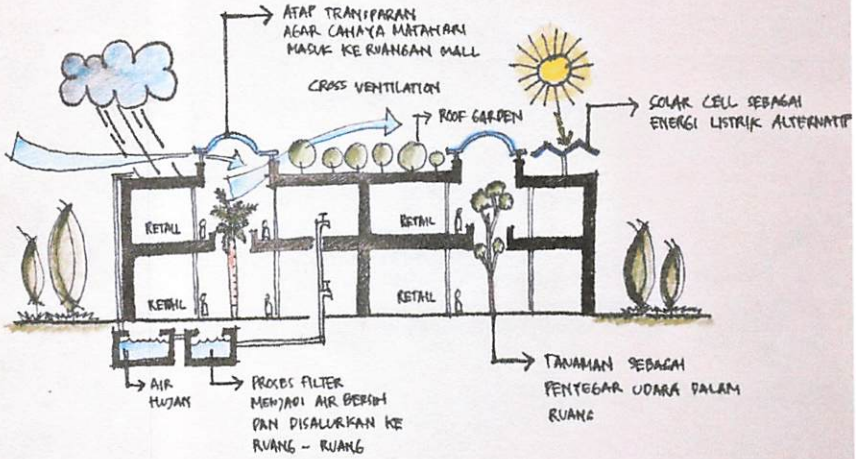 ATAP TRANSPARAN
AGAR CAHAYA MATAHARI
MASUK KE RUANGAN MALL
CROSS VENTILATION
ROOF GARDEN
SOLAR CELL SEBAGAI
ENERGI LISTRIK ALTERNATIF
RETAIL
RETAIL
RETAIL
RETAIL
AIR
HUJAN
PROSES FILTER
MENJADI AIR BERSIH
DAN DISALURKAN KE
RUANG - RUANG
TANAMAN SEBAGAI
PENYEGAR UDARA DALAM
RUANG